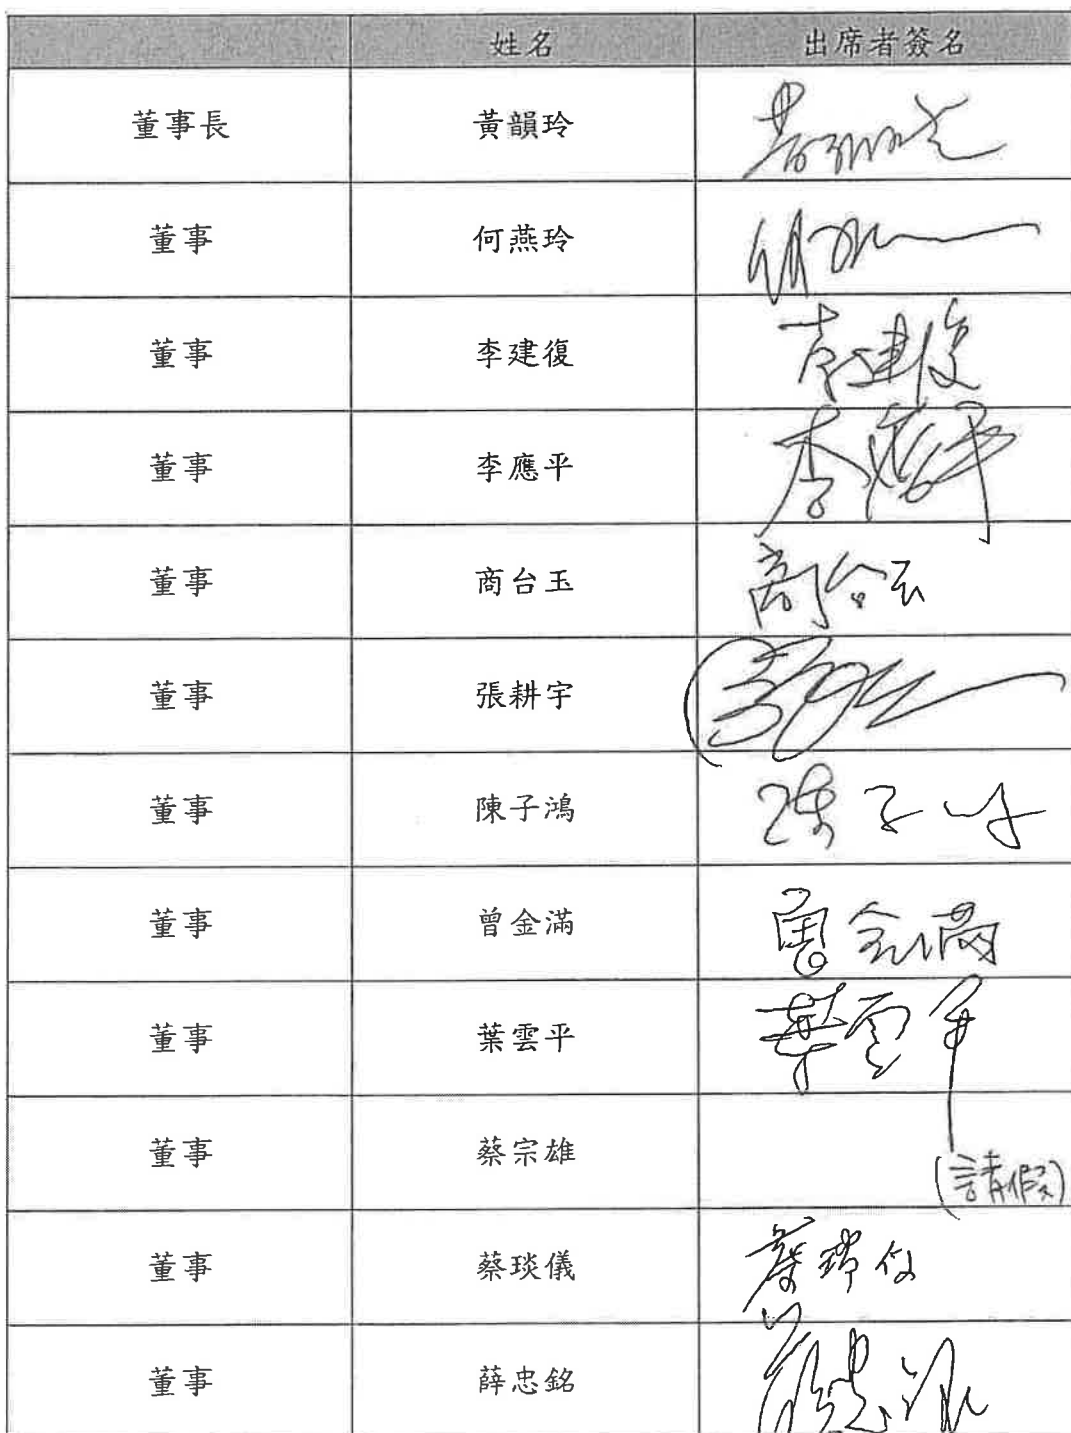 姓名 出席者簽名
董事長 黃韻玲
董事 何燕玲
董事 李建復 李建復
董事 李應平 李應平
董事 商台玉 商台玉
董事 張耕宇
董事 陳子鴻 陳子鴻
董事 曾金滿 曾金滿
董事 葉雲平 葉雲平
董事 蔡宗雄 (請假)
董事 蔡琰儀
董事 薛忠銘 薛忠銘